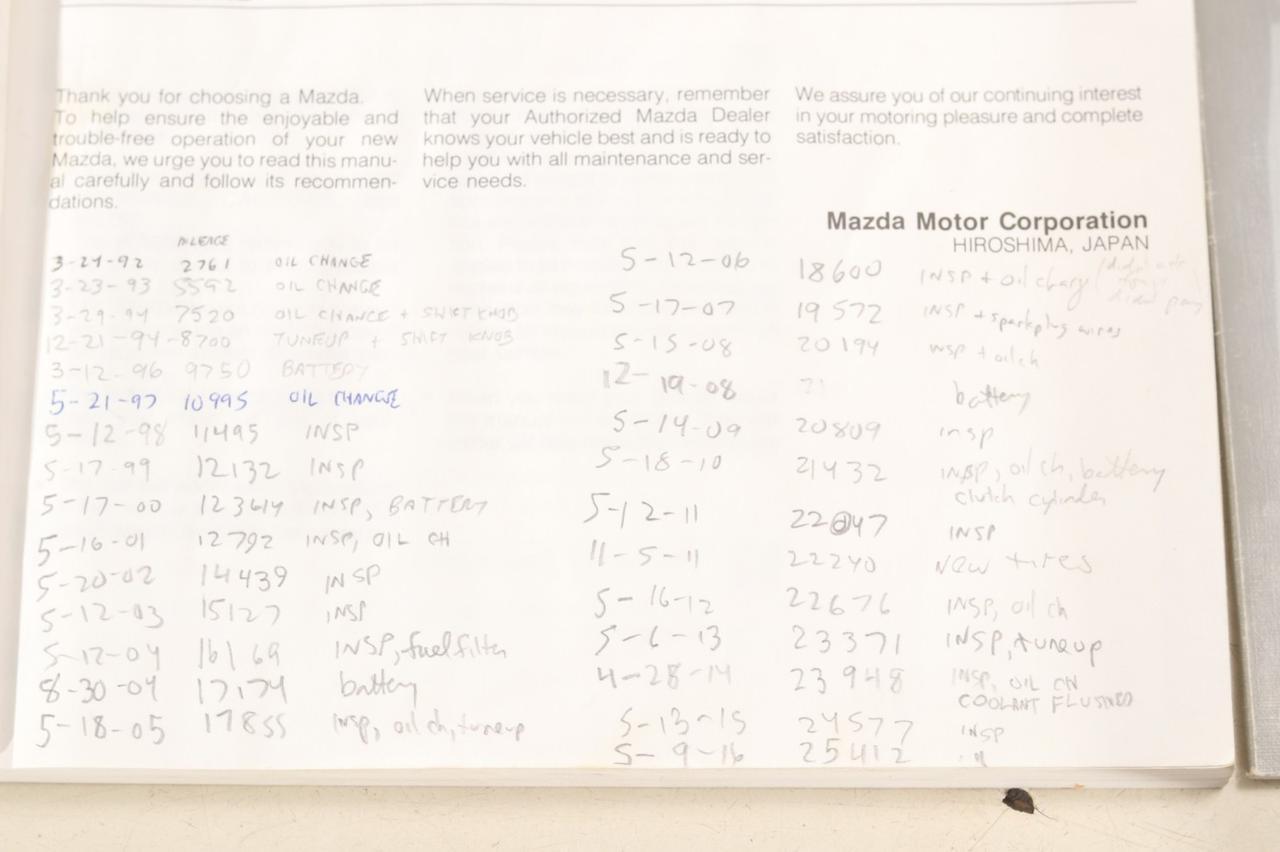 Thank you for choosing a Mazda.
To help ensure the enjoyable and
trouble-free operation of your new
Mazda, we urge you to read this manu-
al carefully and follow its recommen-
dations.
When service is necessary, remember
that your Authorized Mazda Dealer
knows your vehicle best and is ready to
help you with all maintenance and ser-
vice needs.
We assure you of our continuing interest
in your motoring pleasure and complete
satisfaction.
Mazda Motor Corporation
HIROSHIMA, JAPAN
MILEAGE
3-21-92 2761 OIL CHANGE
3-23-93 5592 OIL CHANGE
3-29-94 7520 OIL CHANGE + SHIFT KNOB
12-21-94-8700 TUNEUP + SHIFT KNOB
3-12-96 9750 BATTERY
5-21-97 10995 OIL CHANGE
5-12-98 11495 INSP
5-17-99 12132 INSP
5-17-00 123614 INSP, BATTERY
5-16-01 12792 INSP, OIL CH
5-20-02 14439 INSP
5-12-03 15127 INSP
5-12-04 16169 INSP, fuel filter
8-30-04 17174 battery
5-18-05 17855 insp, oil ch, tuneup
5-12-06 18600 INSP + oil
5-17-07 19572 INSP + sparkplug wires
5-15-08 20194 insp + oil ch
12-19-08 battery
5-14-09 20809 insp
5-18-10 21432 insp, oil ch, battery
clutch cylinder
5-12-11 22047 INSP
11-5-11 22240 New tires
5-16-12 22676 INSP, oil ch
5-6-13 23371 INSP, tuneup
4-28-14 23948 INSP, OIL CH
COOLANT FLUSHED
5-13-15 24577 INSP
5-9-16 25412 "